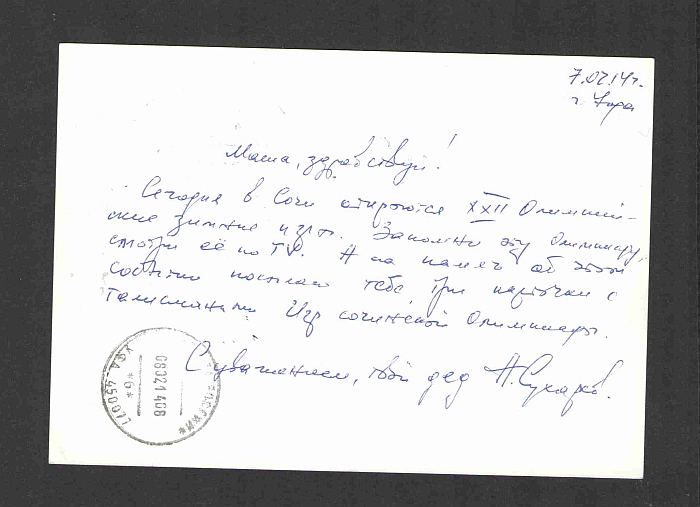 7.02.14г.
г. Уфа
Маша, здравствуй!
Сегодня в Сочи откроются XXII Олимпий-
ские зимние игры. Запомни эту Олимпиаду,
смотри её по TV. А на память об этом
событии посылаю тебе три карточки с
талисманами Игр сочинской Олимпиады.
С уважением, твой дед А.Сухарев.
УФА-450077
*6*
08021408